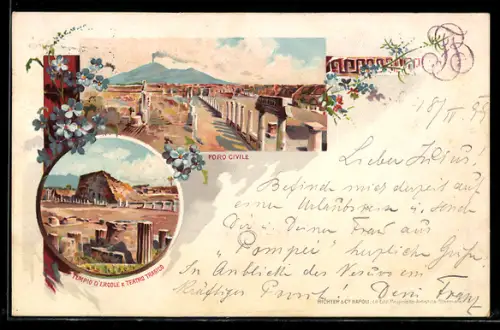 FORO CIVILE
TEMPIO D'ERCOLE E TEATRO TRAGICO
18/II 99
Lieber Julius!
Befinde mich derzeit auf
einer Urlaubsreise u. sende
Dir u. Deiner Frau aus
"Pompei" herzliche Grüße
Im Anblicke des Vesuvs ein
kräftiges Prosit! Dein Franz
RICHTER & Cº NAPOLI